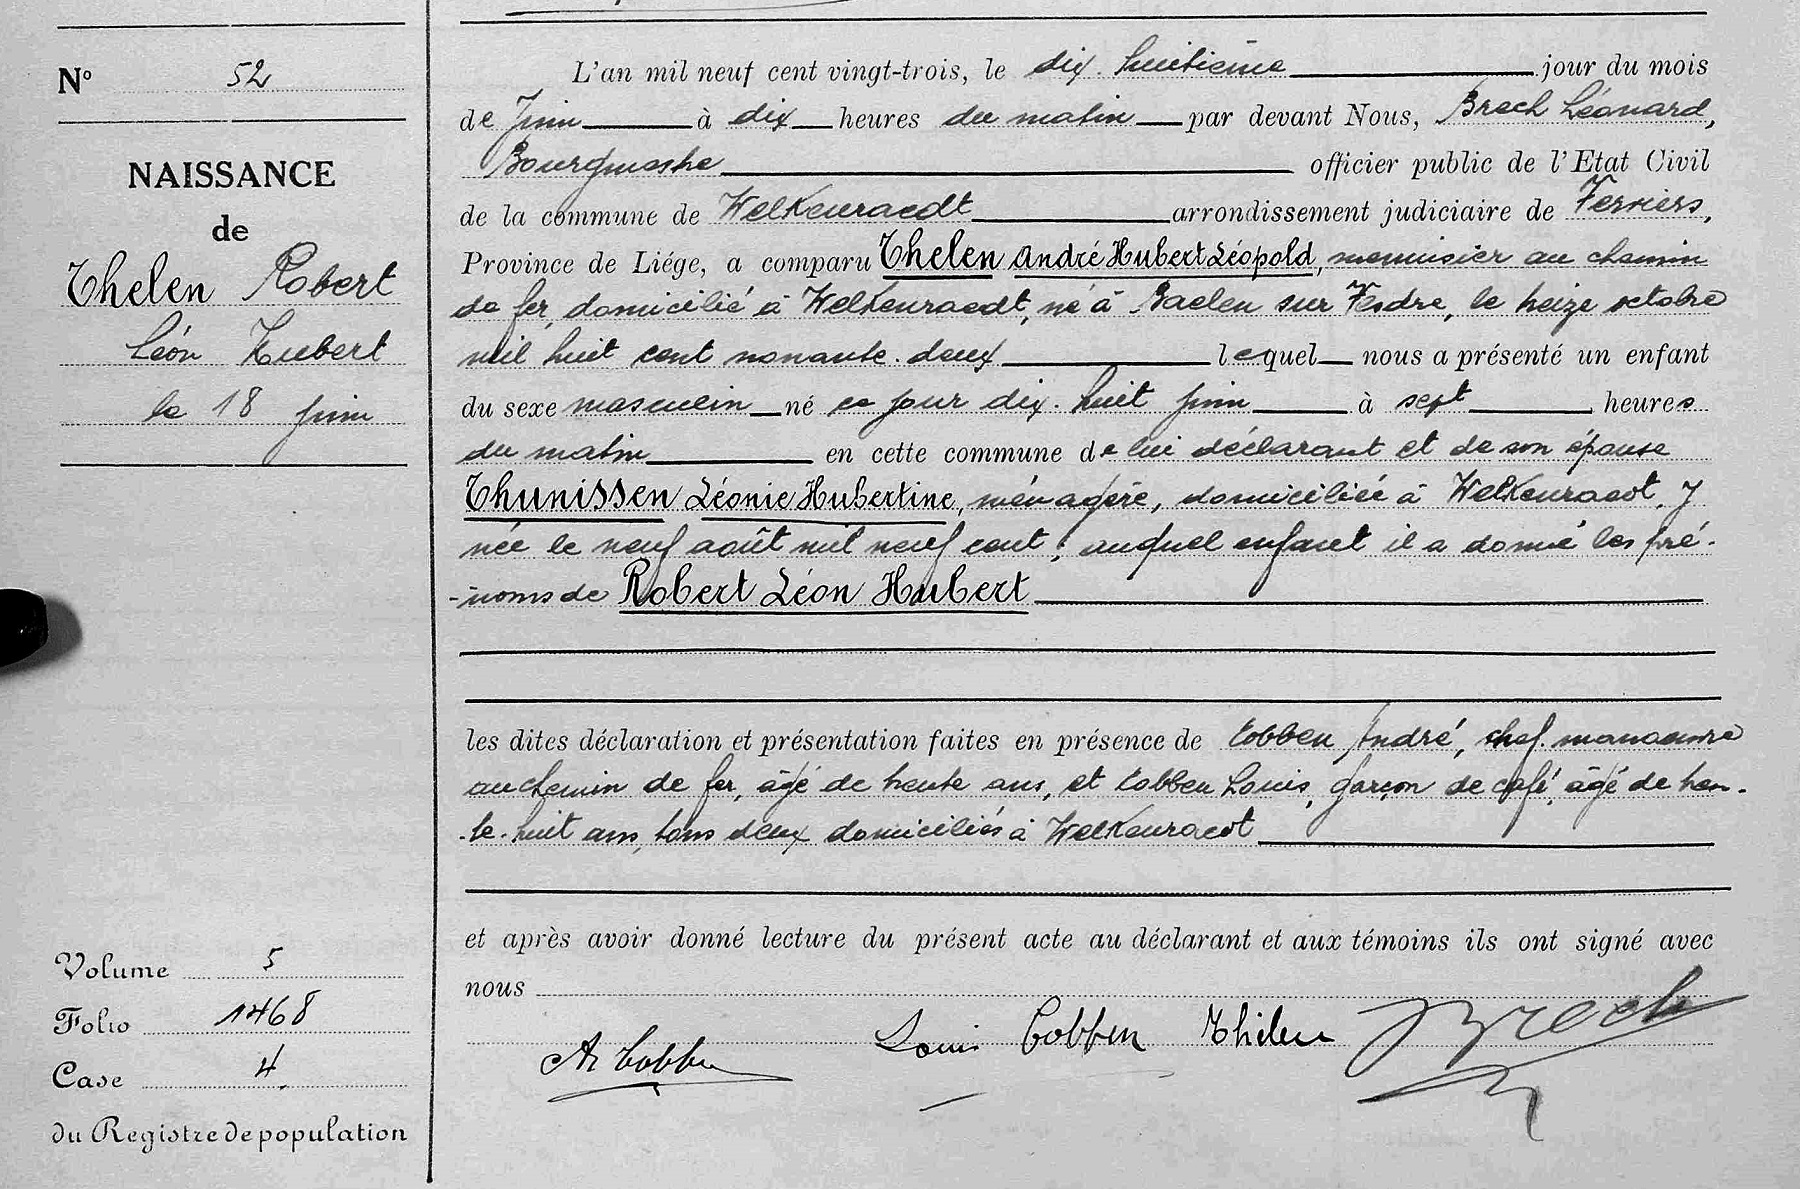 N° 52
NAISSANCE
de
Thelen Robert
Léon Hubert
le 18 juin
Volume 5
Folio 1468
Case 4.
du Registre de population
L'an mil neuf cent vingt-trois, le dix-huitième jour du mois
de Juin à dix heures du matin par devant Nous, Brech Léonard,
Bourgmestre officier public de l'Etat Civil
de la commune de Welkenraedt arrondissement judiciaire de Verviers,
Province de Liége, a comparu Thelen André Hubert Léopold, menuisier au chemin
de fer, domicilié à Welkenraedt, né à Baelen sur Vesdre, le treize octobre
mil huit cent nonante-deux lequel nous a présenté un enfant
du sexe masculin né ce jour dix-huit juin à sept heures
du matin en cette commune de lui déclarant et de son épouse
Thunissen Léonie Hubertine, ménagère, domiciliée à Welkenraedt, y
née le neuf août mil neuf cent; auquel enfant il a donné les pré-
-noms de Robert Léon Hubert
les dites déclaration et présentation faites en présence de Cobben André, chef-manoeuvre
au chemin de fer, âgé de trente ans, et Cobben Louis, garçon de café, âgé de tren-
-te-huit ans, tous deux domiciliés à Welkenraedt
et après avoir donné lecture du présent acte au déclarant et aux témoins ils ont signé avec
nous
A. Cobben Louis Cobben Thelen Brech